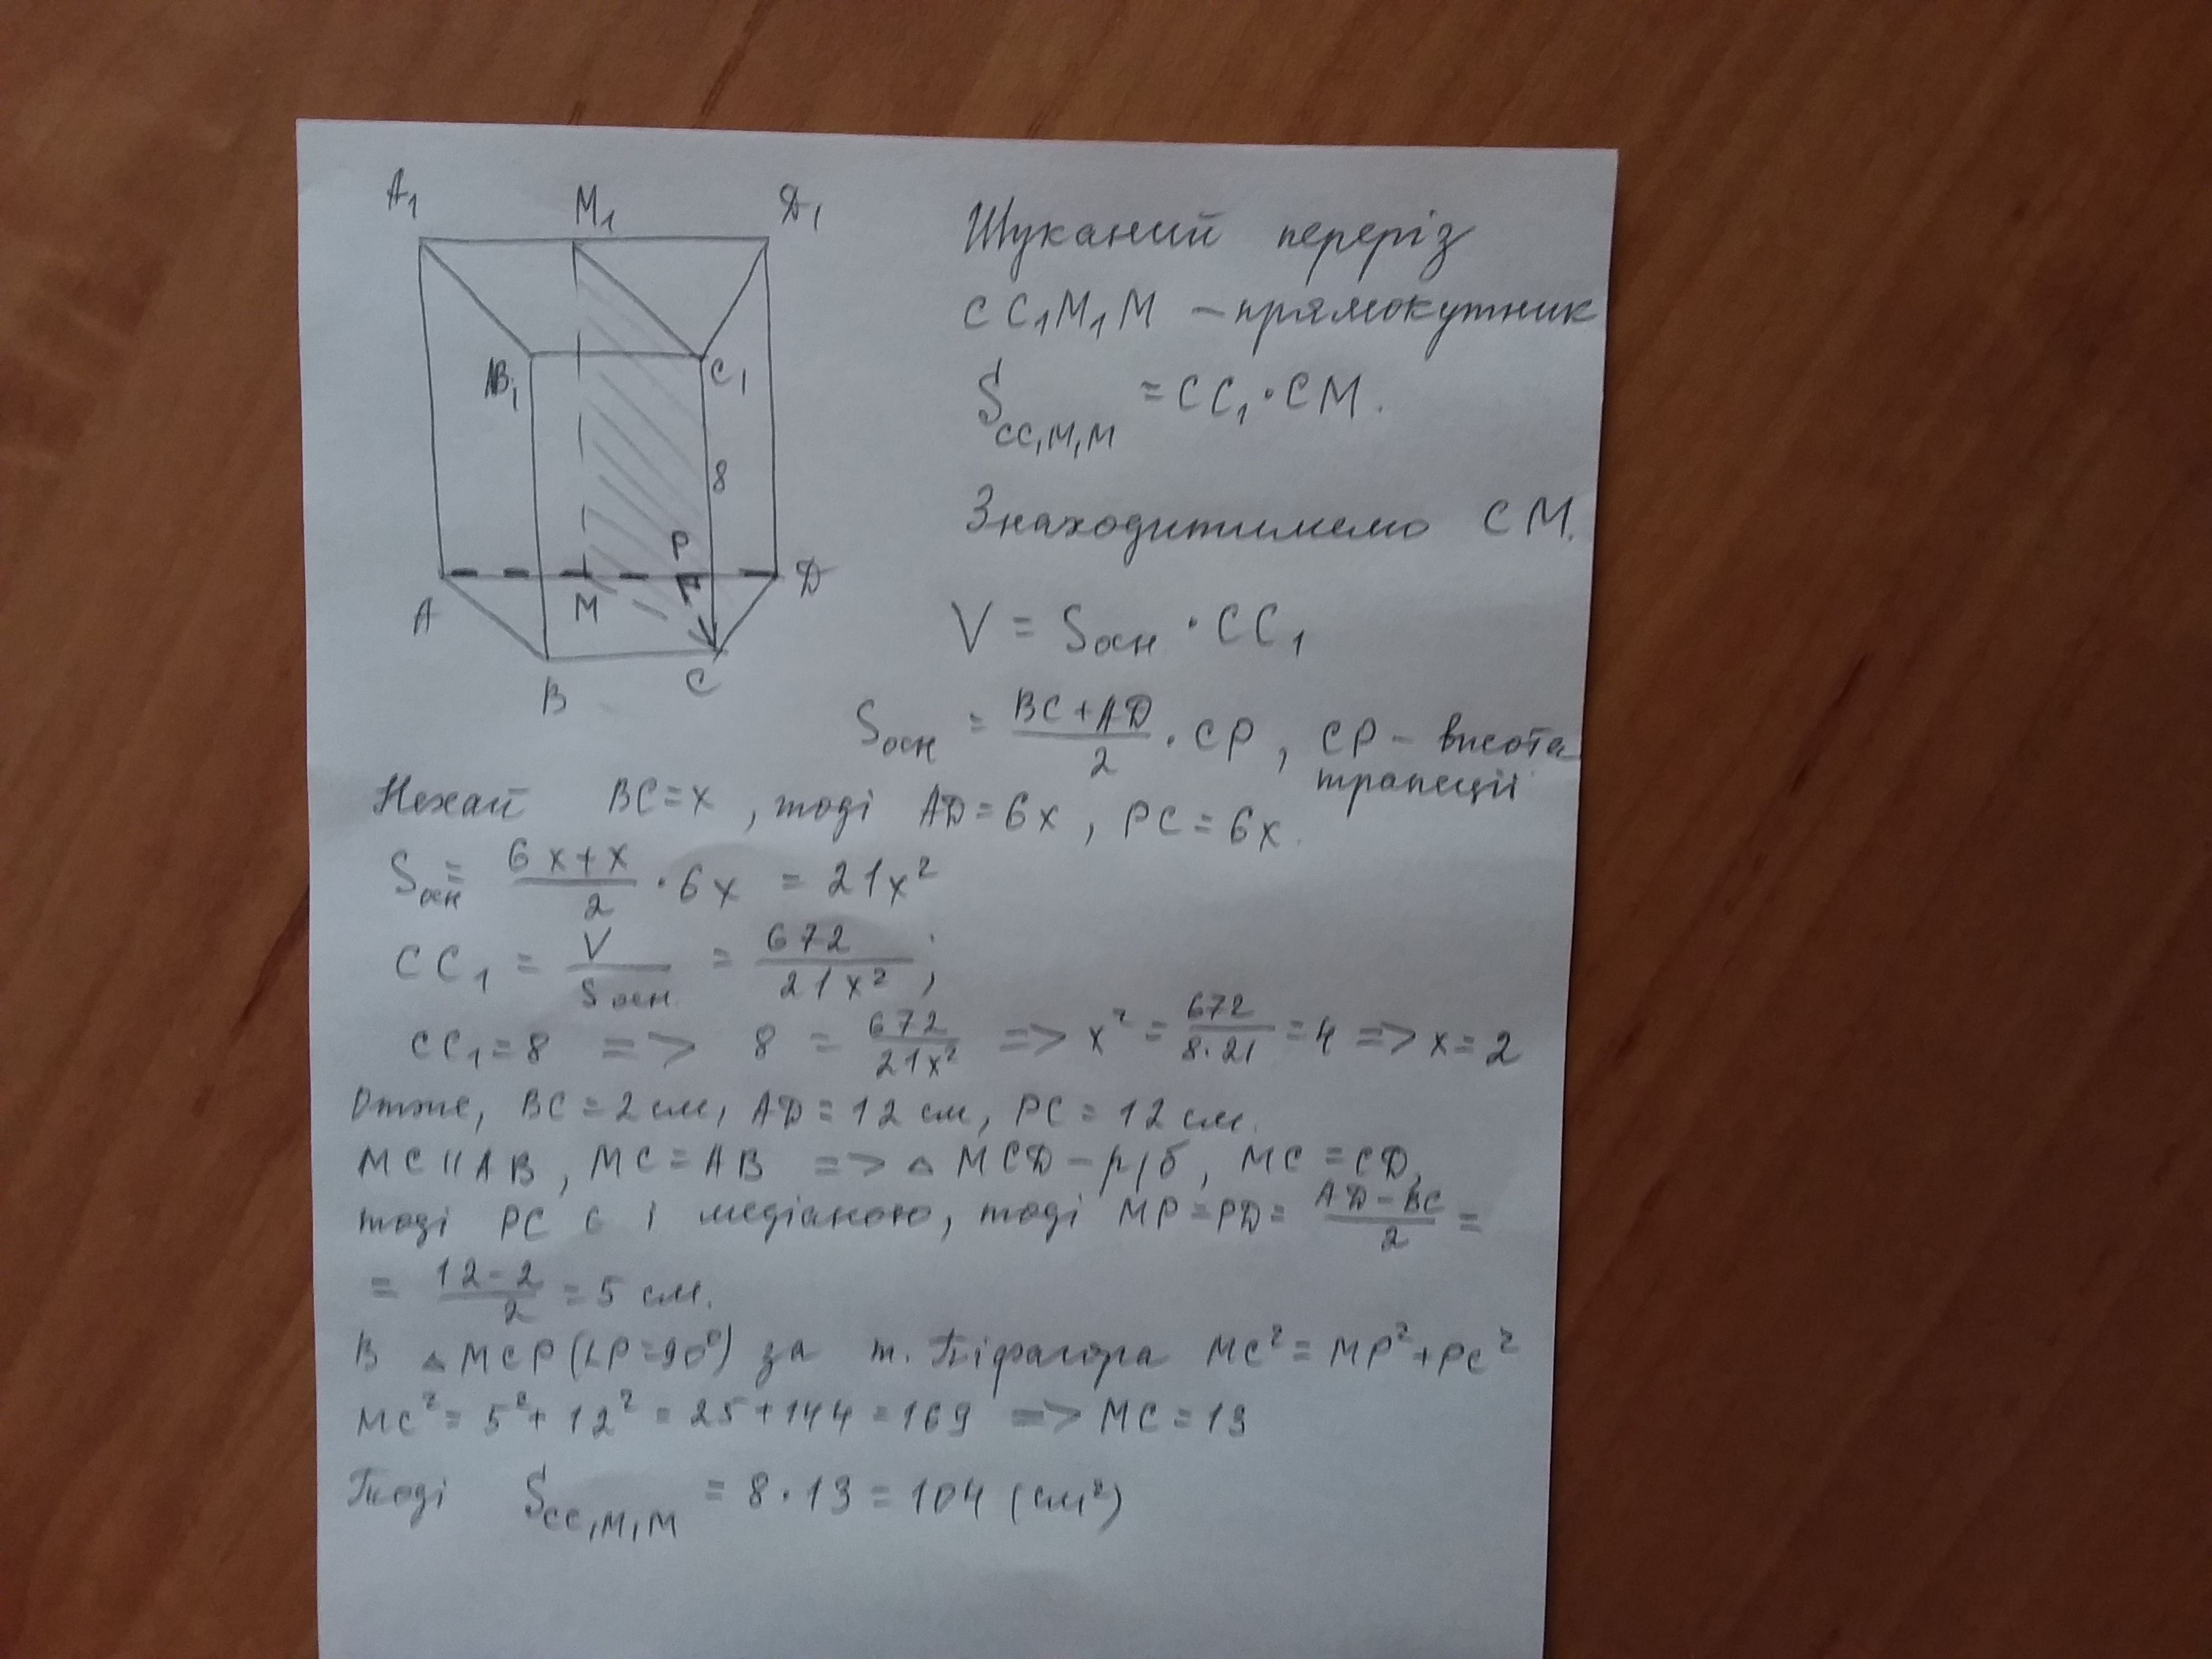 A₁ M₁ D₁
B₁ C₁
8
P
A M D
B C
Шуканий переріз
CC₁M₁M – прямокутник
S_{CC₁M₁M} = CC₁ · CM.
Знаходитимемо CM.
V = Sосн · CC₁
Sосн = (BC + AD)/2 · CP, CP – висота
трапеції
Нехай BC = x, тоді AD = 6x, PC = 6x.
Sосн = (6x + x)/2 · 6x = 21x²
CC₁ = V/Sосн = 672/21x²;
CC₁ = 8 => 8 = 672/21x² => x² = 672/8·21 = 4 => x = 2
Отже, BC = 2 см, AD = 12 см, PC = 12 см.
MC || AB, MC = AB => △ MCD – р/б, MC = CD,
тоді PC є і медіаною, тоді MP = PD = (AD – BC)/2 =
= (12 – 2)/2 = 5 см.
В △ MCP (∠P = 90°) за т. Піфагора MC² = MP² + PC²
MC² = 5² + 12² = 25 + 144 = 169 => MC = 13
Тоді S_{CC₁M₁M} = 8 · 13 = 104 (см²)